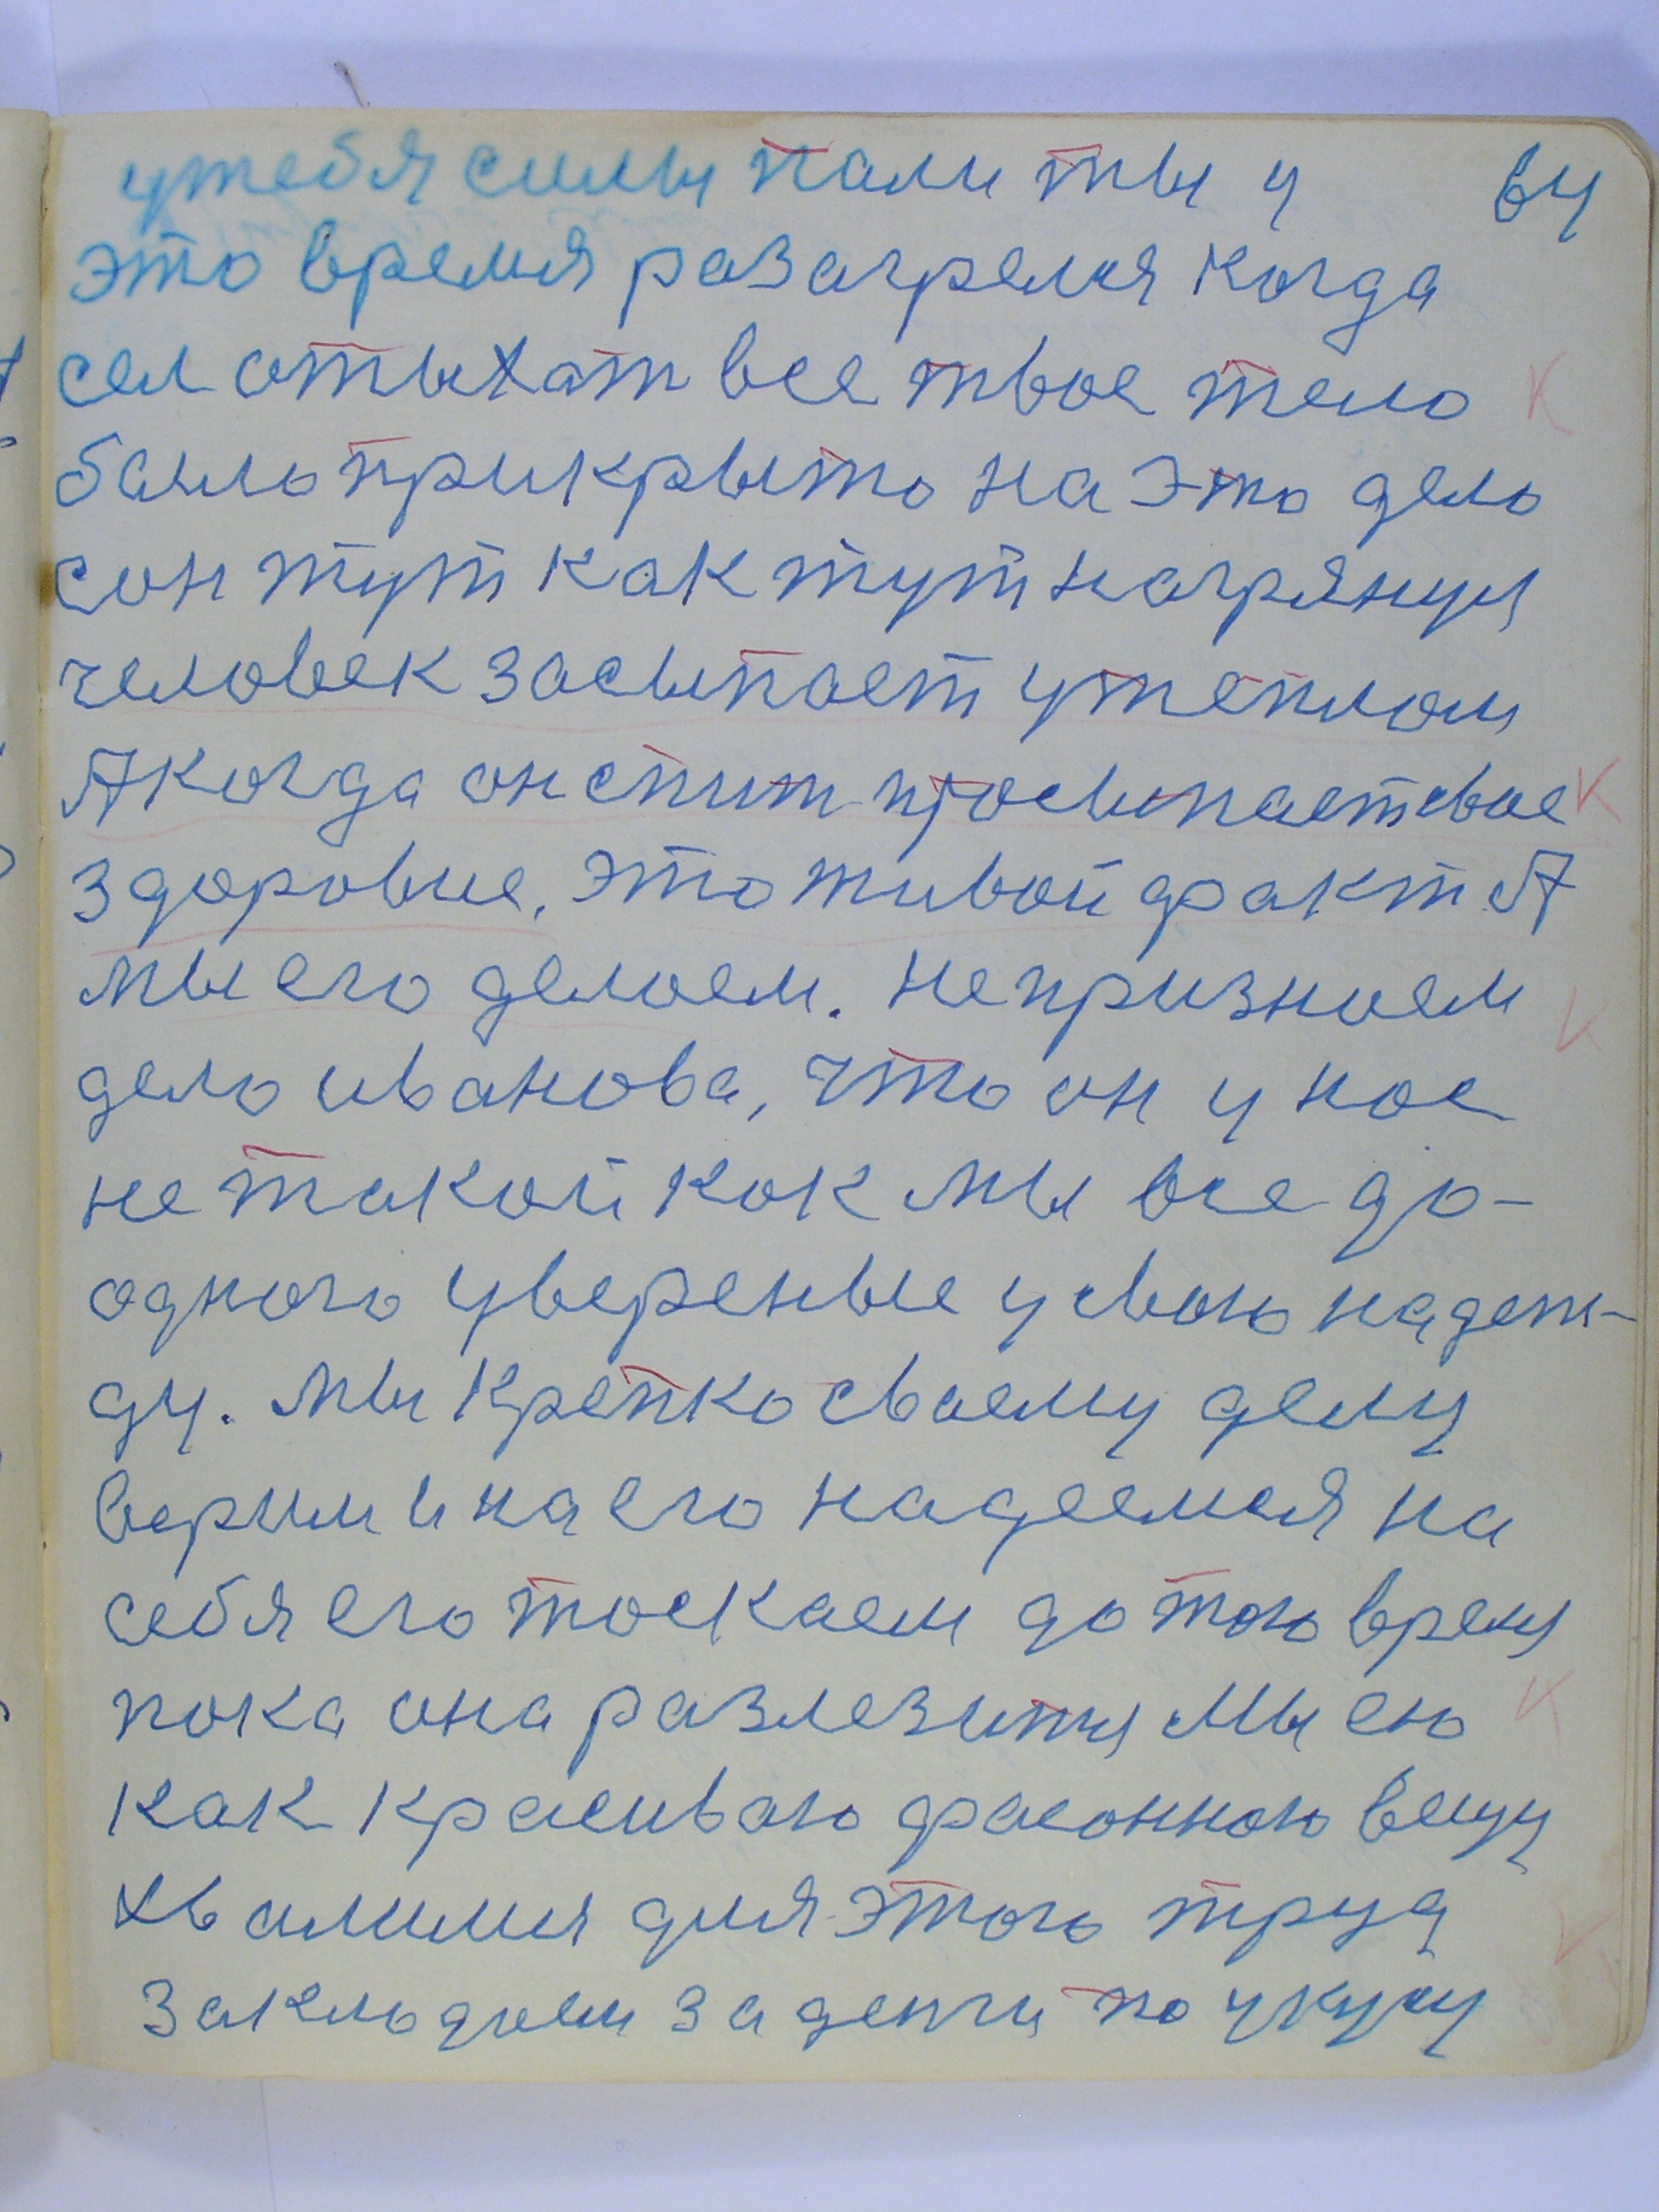 утебя силы пали ты у 64
это время разагрелся когда
сел отыхат все твое тело
было прикрыто на это дело
сон тут как тут нагрянул
человек засыпает утеплом
А когда он спит просыпает свое
здоровие, это живой факт А
мы его делаем. Непризнаем
дело иванова, что он у нас
не такой как мы все до-
одного увереные у свою надеж-
ду. Мы крепко своему делу
верим и на его надеемся на
себя его тоскаем до тою время
пока она разлезится Мы ею
как красиваю фасонною вещу
хвалимся для этого труд
закладаем за денги по укусу